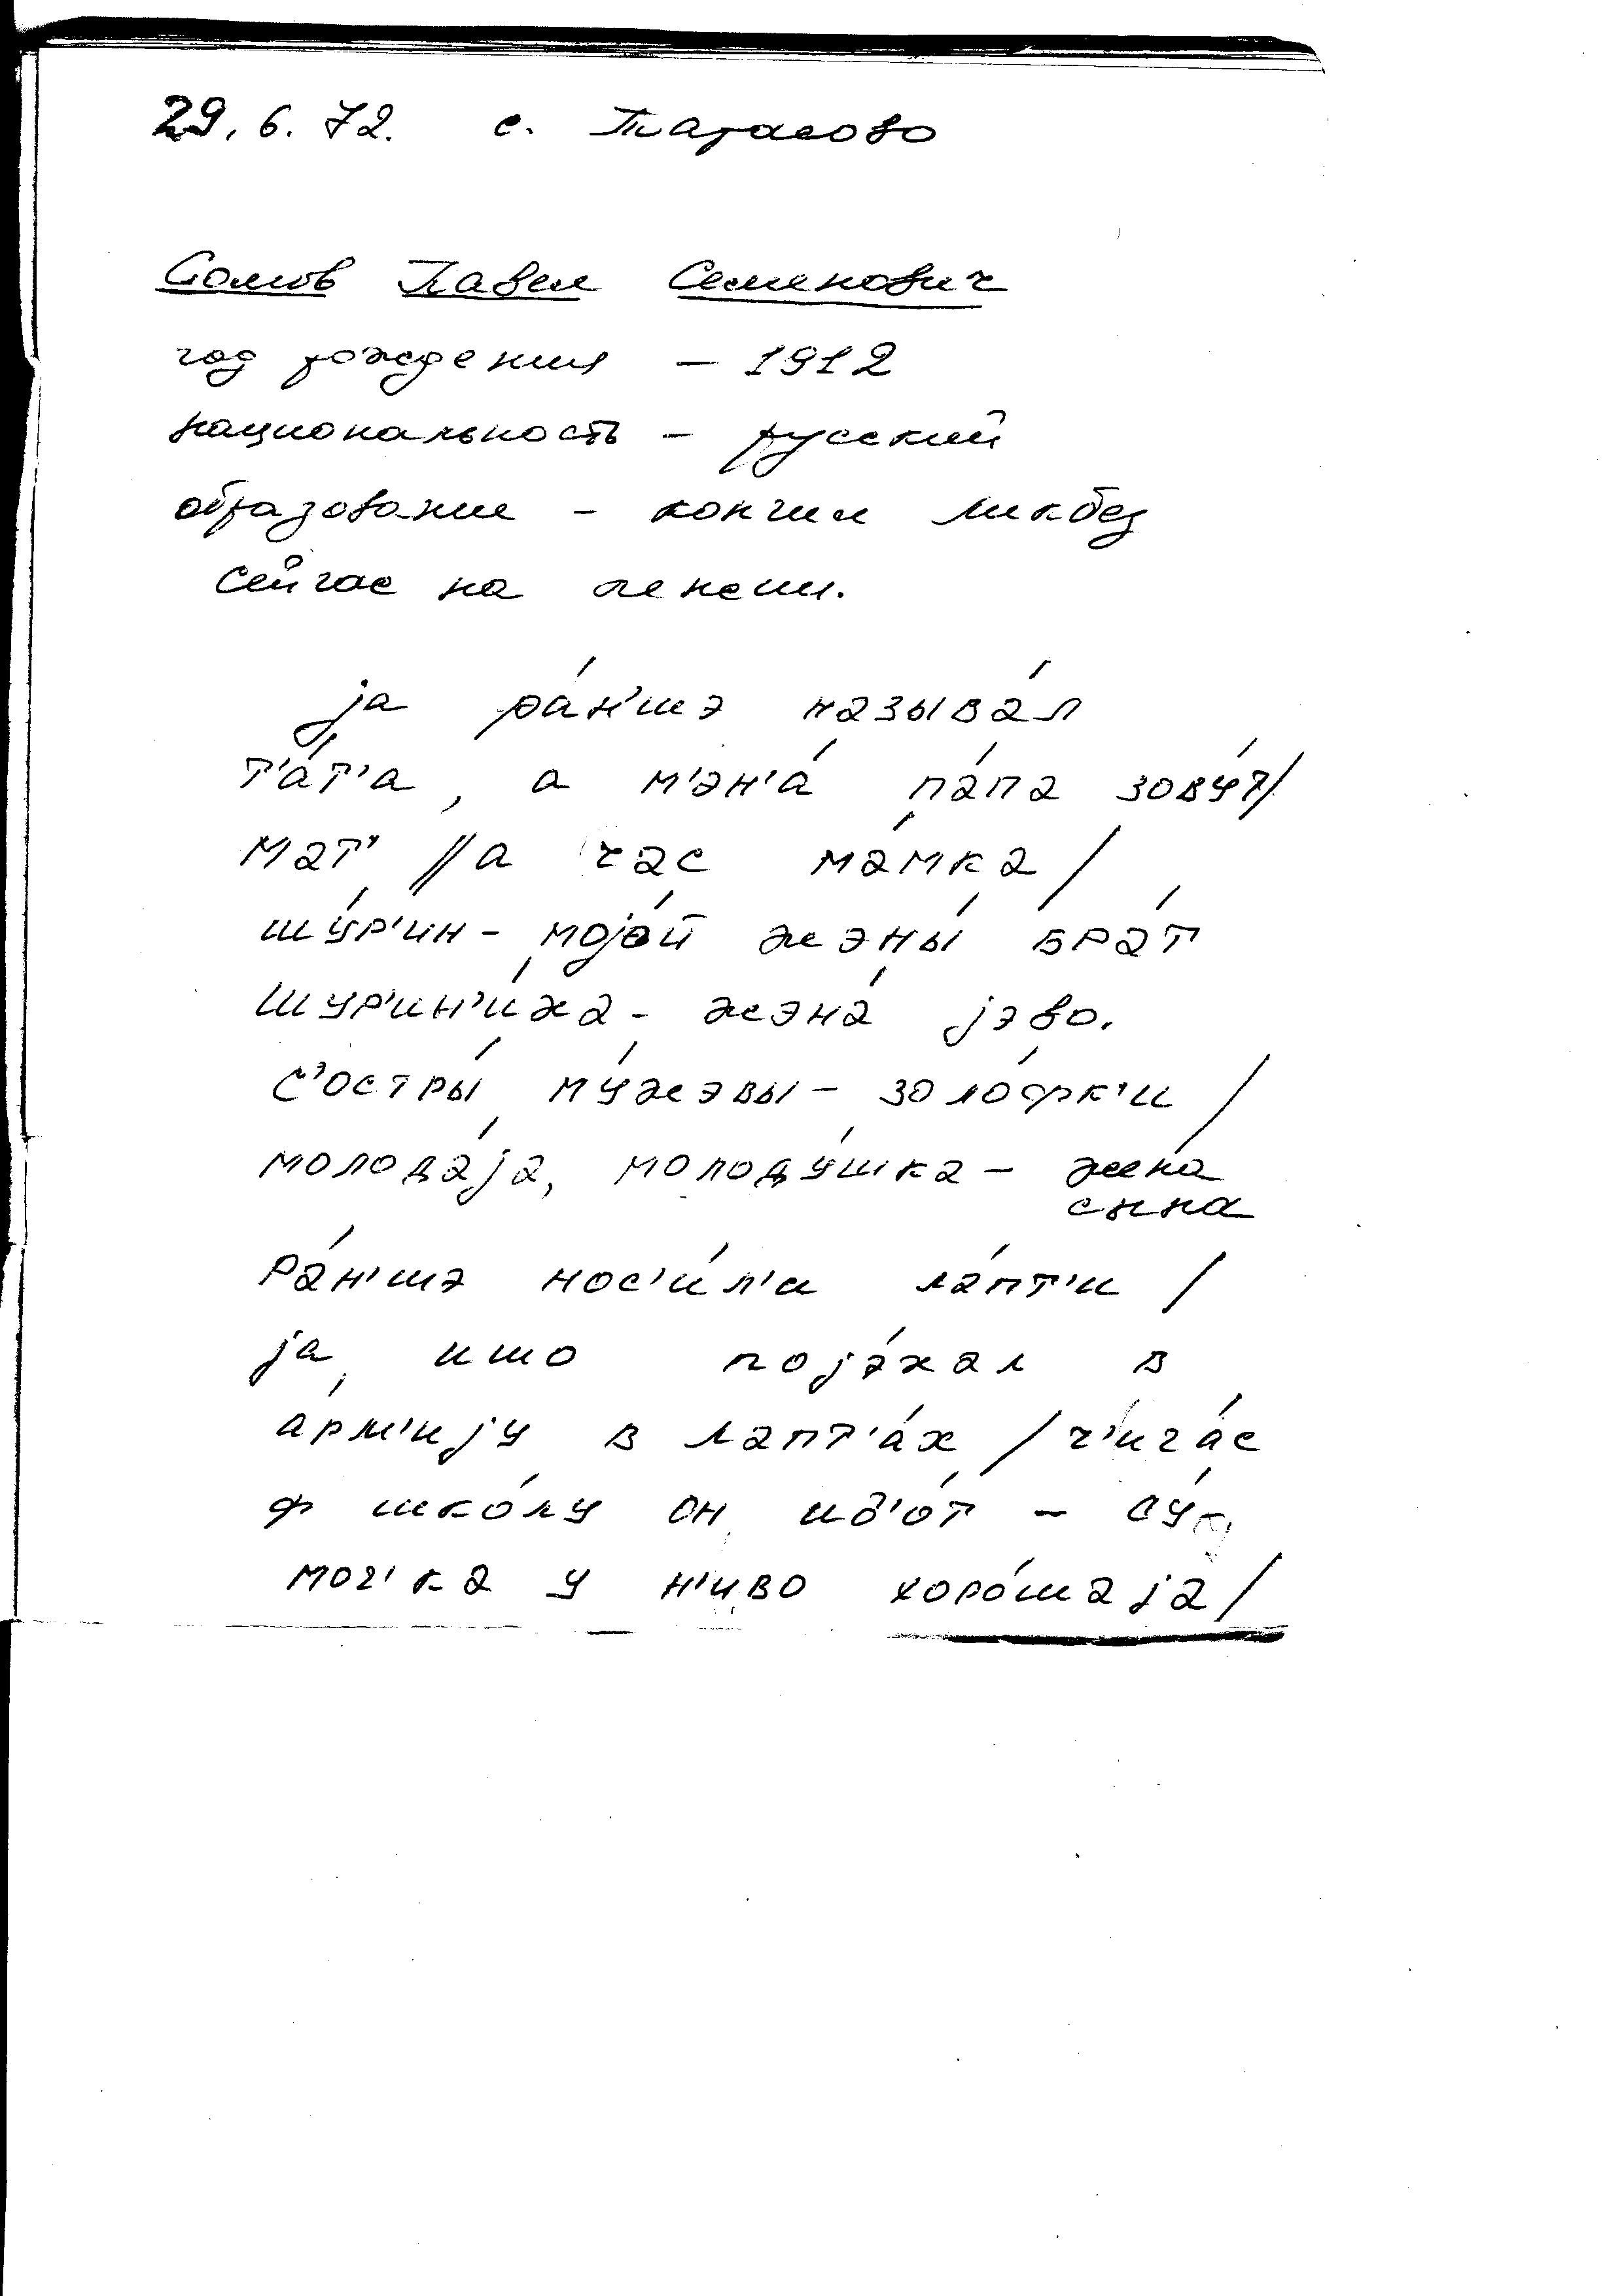 29. 6. 72. с. Тарасово
Сомов Павел Семенович
год рождения – 1912
национальность – русский
образование – кончил ликбез
сейчас на пенсии.
jа ра́н'шэ называ́л
т'а́т'а, а м'эн'а́ па́па зову́т/
мат' // а час ма́мка /
шу́р'ин – моjо́й жэны́ бра́т
шур'ин'и́ха – жэна́ jэво.
с'остры́ му́жэвы – золо́фк'и /
молода́jа, молоду́шка – жена
сына
ра́н'шэ нос'и́л'и ла́пт'и /
jа ишо поjэ́хал в
а́рм'иjу в лапт'а́х / ч'ича́с
ф шко́лу он ид'о́т – су́
моч'ка у н'иво хоро́шаjа /